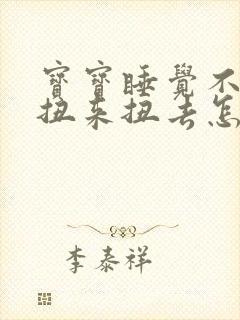 寶寶睡覺不
扭來扭去怎
李泰祥